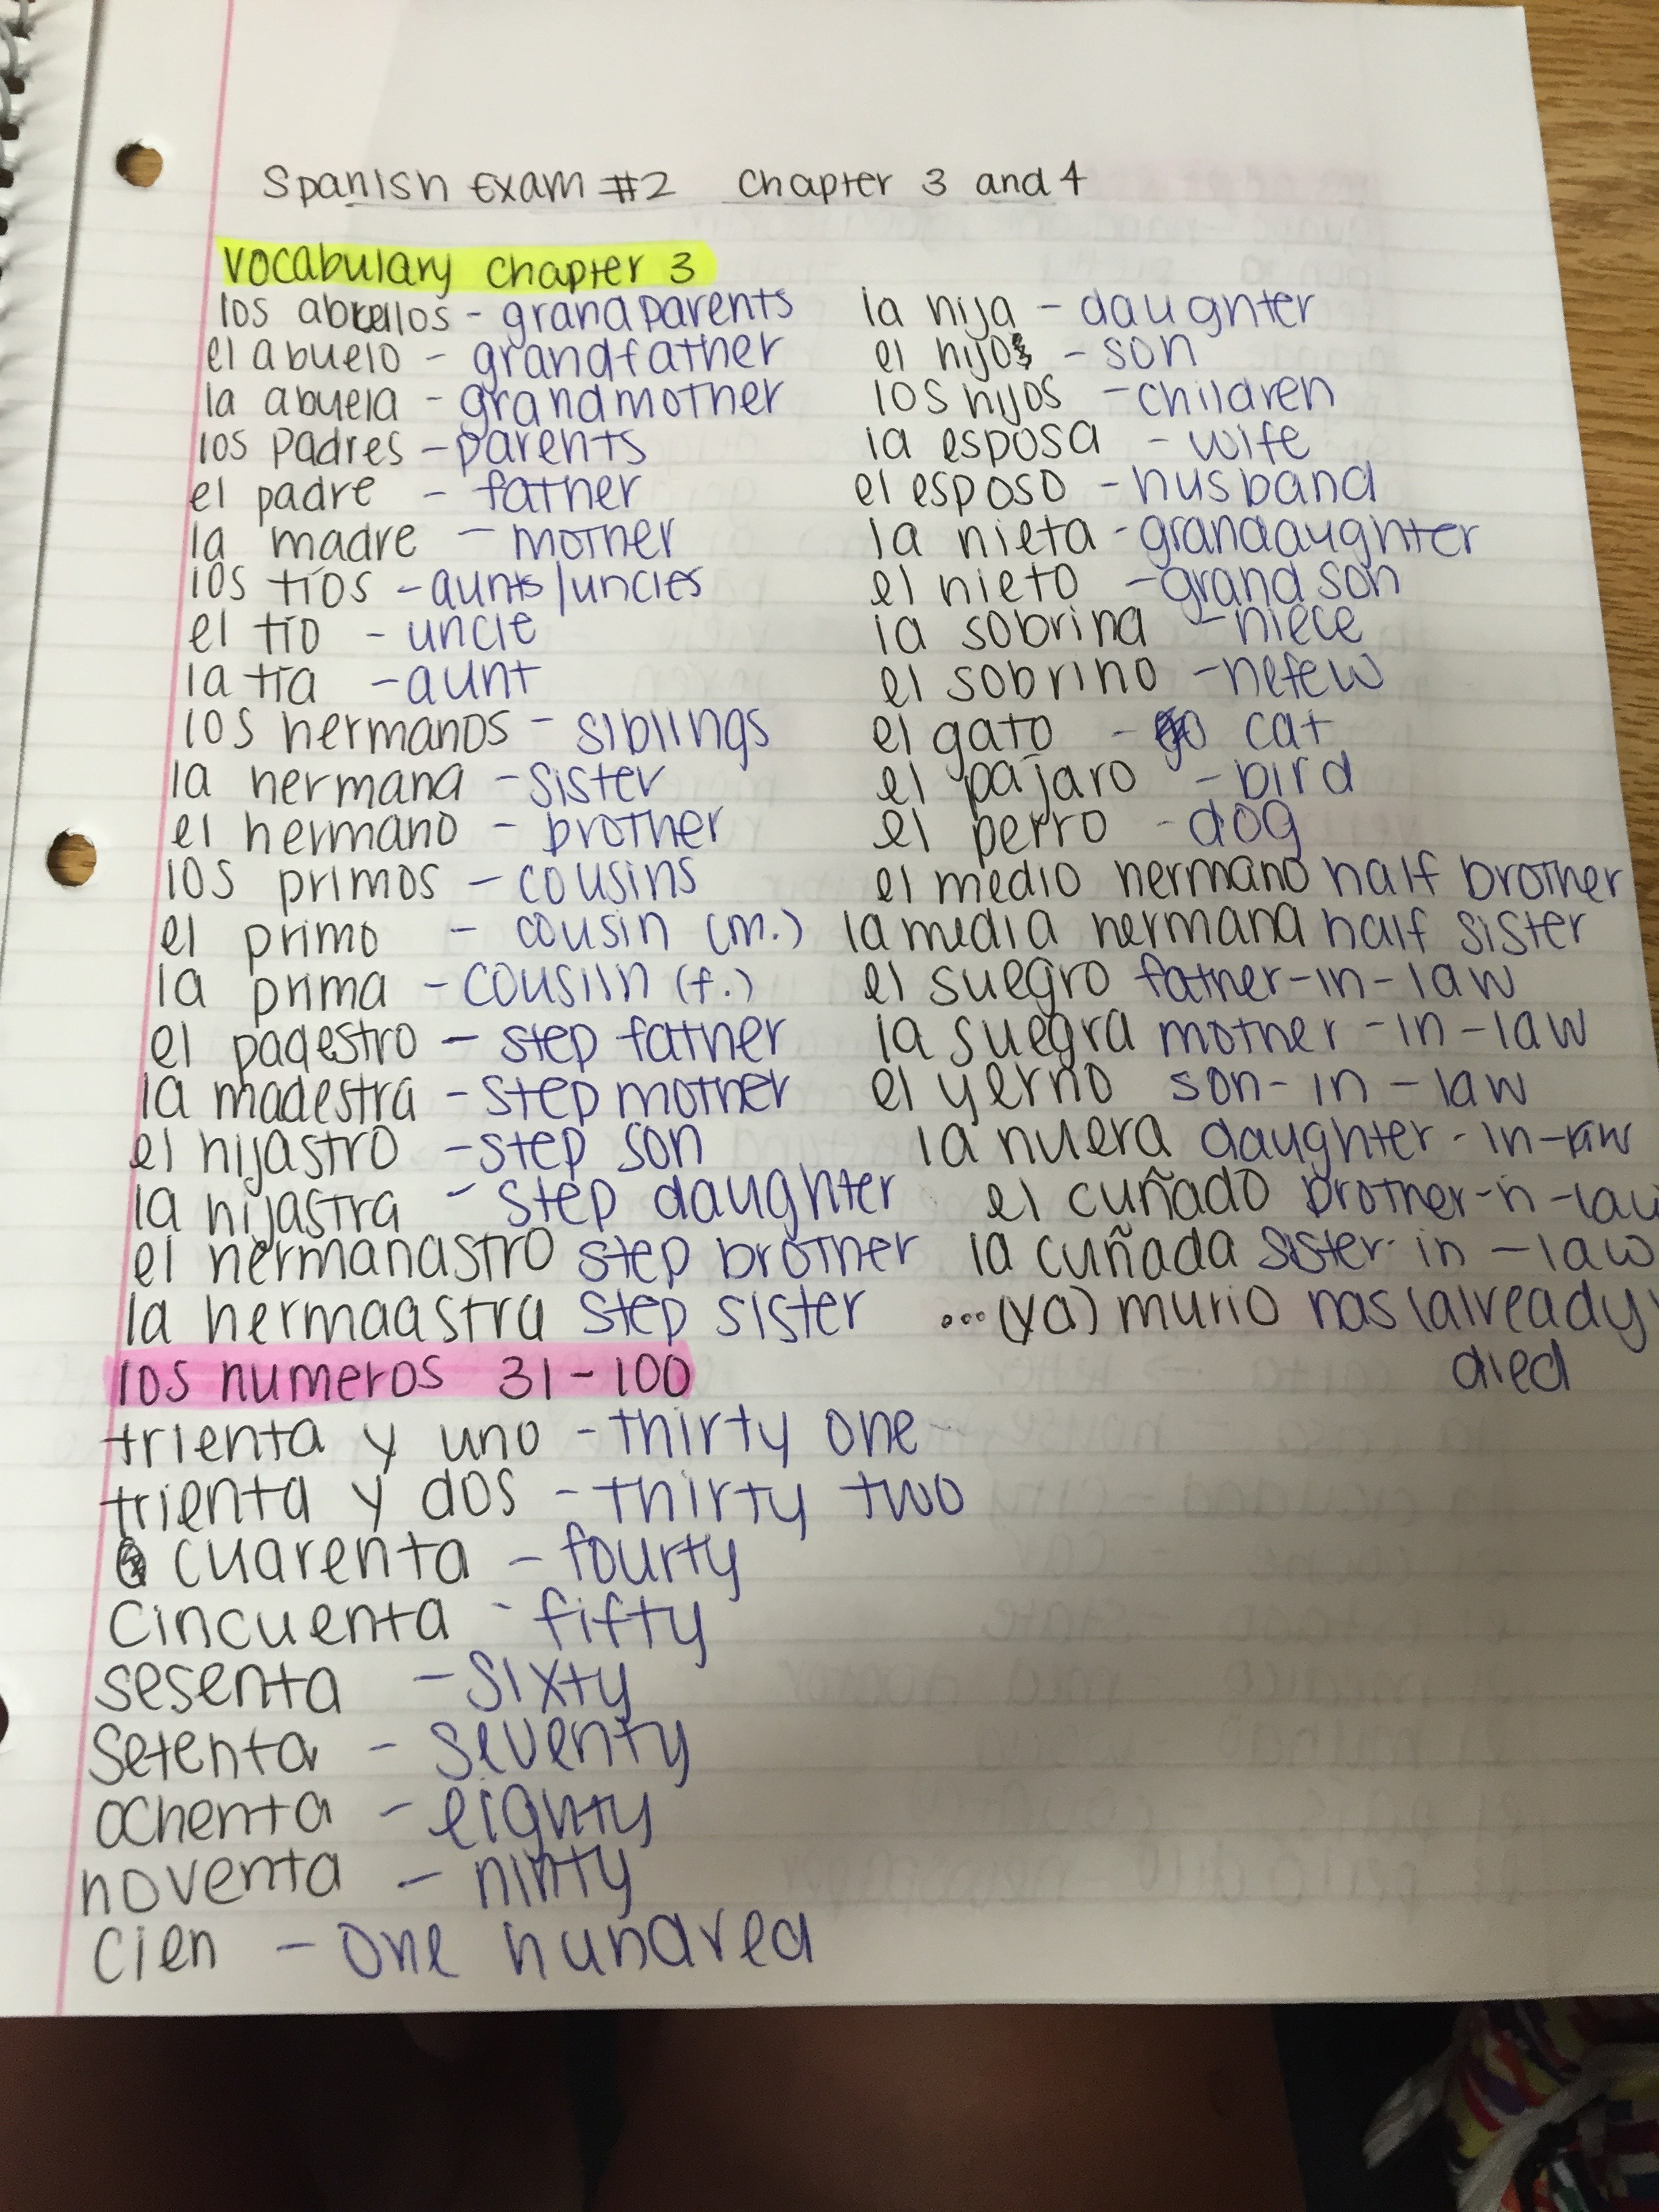 Spanish Exam #2 Chapter 3 and 4
Vocabulary Chapter 3
los abuelos - grandparents
el abuelo - grandfather
la abuela - grandmother
los padres - parents
el padre - father
la madre - mother
los tíos - aunts/uncles
el tío - uncle
la tía - aunt
los hermanos - siblings
la hermana - sister
el hermano - brother
los primos - cousins
el primo - cousin (m.)
la prima - cousiin (f.)
el padestro - step father
la madestra - step mother
el hijastro - step son
la hijastra - step daughter
el hermanastro step brother
la hermaastra step sister
la hija - daughter
el hijo - son
los hijos - children
la esposa - wife
el esposo - husband
la nieta - grandaughter
el nieto - grand son
la sobrina - niece
el sobrino - nefew
el gato - cat
el pájaro - bird
el perro - dog
el medio hermano half brother
la media hermana half sister
el suegro father-in-law
la suegra mother-in-law
el yerno son-in-law
la nuera daughter-in-law
el cuñado brother-n-law
la cuñada sister-in-law
...(ya) murio has (already)
died
los numeros 31-100
trienta y uno - thirty one
trienta y dos - thirty two
cuarenta - fourty
cincuenta - fifty
sesenta - sixty
setenta - seventy
ochenta - eighty
noventa - ninty
cien - one hundred